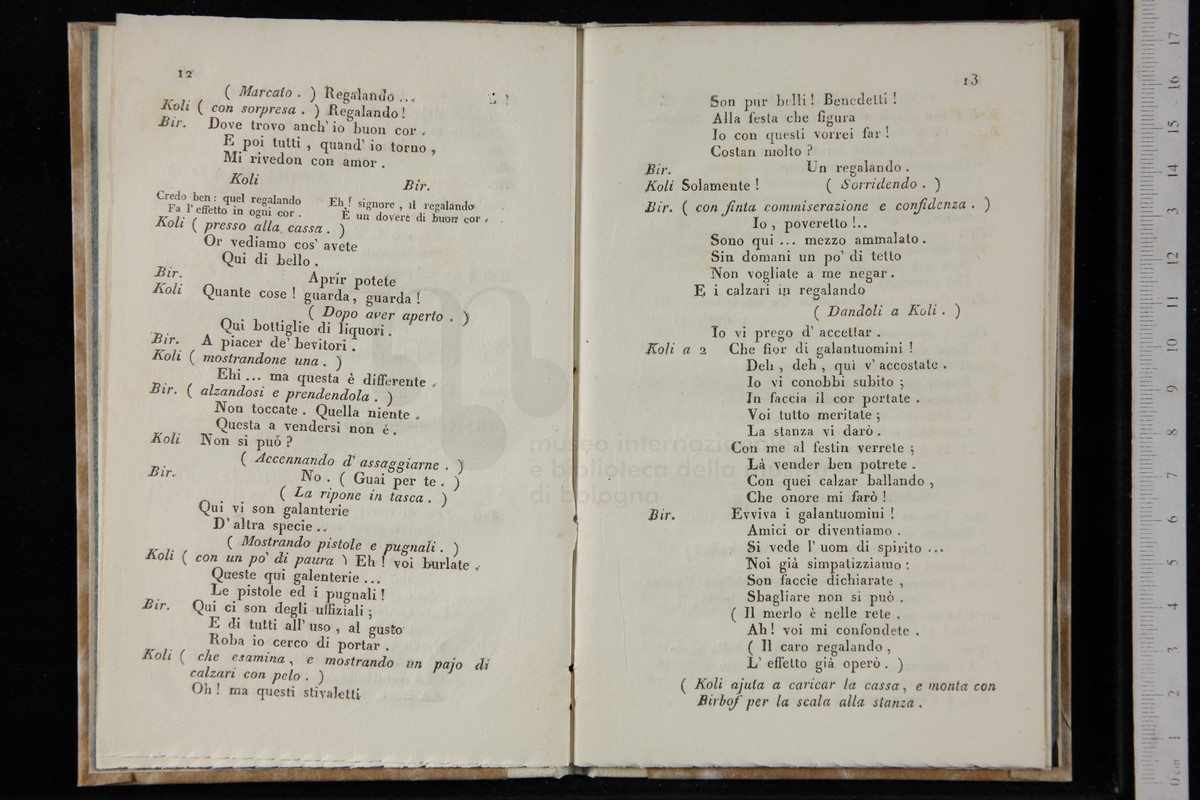 12
( Marcato . ) Regalando ...
Koli ( con sorpresa . ) Regalando !
Bir. Dove trovo anch' io buon cor .
E poi tutti , quand' io torno ,
Mi rivedon con amor .
Koli
Bir.
Credo ben : quel regalando
Fa l' effetto in ogni cor .
Eh ! signore , il regalando
È un dovere di buon cor .
Koli ( presso alla cassa . )
Or vediamo cos' avete
Qui di bello .
Bir. Aprir potete
Koli Quante cose ! guarda , guarda !
( Dopo aver aperto . )
Qui bottiglie di liquori .
Bir. A piacer de' bevitori .
Koli ( mostrandone una . )
Ehi ... ma questa è differente .
Bir. ( alzandosi e prendendola . )
Non toccate . Quella niente .
Questa a vendersi non é .
Koli Non si può ?
( Accennando d' assaggiarne . )
Bir. No . ( Guai per te . )
( La ripone in tasca . )
Qui vi son galanterie
D' altra specie ..
( Mostrando pistole e pugnali . )
Koli ( con un po' di paura ) Eh ! voi burlate .
Queste qui galenterie ...
Le pistole ed i pugnali !
Bir. Qui ci son degli uffiziali ;
E di tutti all' uso , al gusto
Roba io cerco di portar .
Koli ( che esamina , e mostrando un pajo di
calzari con pelo . )
Oh ! ma questi stivaletti
13
Son pur belli ! Benedetti !
Alla festa che figura
Io con questi vorrei far !
Costan molto ?
Bir. Un regalando .
Koli Solamente ! ( Sorridendo . )
Bir. ( con finta commiserazione e confidenza . )
Io , poveretto !..
Sono qui ... mezzo ammalato .
Sin domani un po' di tetto
Non vogliate a me negar .
E i calzari in regalando
( Dandoli a Koli . )
Io vi prego d' accettar .
Koli a 2 Che fior di galantuomini !
Deh , deh , qui v' accostate .
Io vi conobbi subito ;
In faccia il cor portate .
Voi tutto meritate ;
La stanza vi darò .
Con me al festin verrete ;
Là vender ben potrete .
Con quei calzar ballando ,
Che onore mi farò !
Bir. Evviva i galantuomini !
Amici or diventiamo .
Si vede l' uom di spirito ...
Noi già simpatizziamo :
Son faccie dichiarate ,
Sbagliare non si può .
( Il merlo è nelle rete .
Ah ! voi mi confondete .
( Il caro regalando ,
L' effetto già operò . )
( Koli ajuta a caricar la cassa , e monta con
Birbof per la scala alla stanza .
museo internazionale
e biblioteca della musica
di bologna
0 cm 1 2 3 4 5 6 7 8 9 10 11 12 13 14 15 16 17